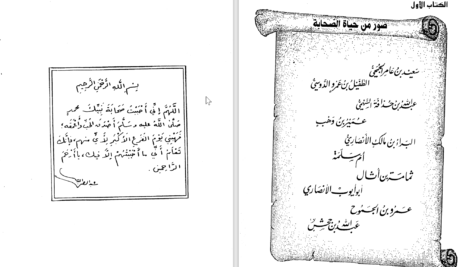 الكتاب الأول
صور من حياة الصحابة
سعيد بن عامر الجمحي
الطفيل بن عمرو الدوسي
عبد الله بن حذافة السهمي
عمير بن وهب
البراء بن مالك الأنصاري
أم سلمة
ثمامة بن أثال
أبو أيوب الأنصاري
عمرو بن الجموح
عبد الله بن جحش
بسم الله الرحمن الرحيم
اللهم إني أحببت صحابة نبيك محمد
صلى الله عليه وسلم أصدق الحب وأعمقه؛
فهبني يوم الفزع الأكبر لأي منهم، فإنك
تعلم أني ما أحببتهم إلا فيك، يا أرحم
الراحمين.